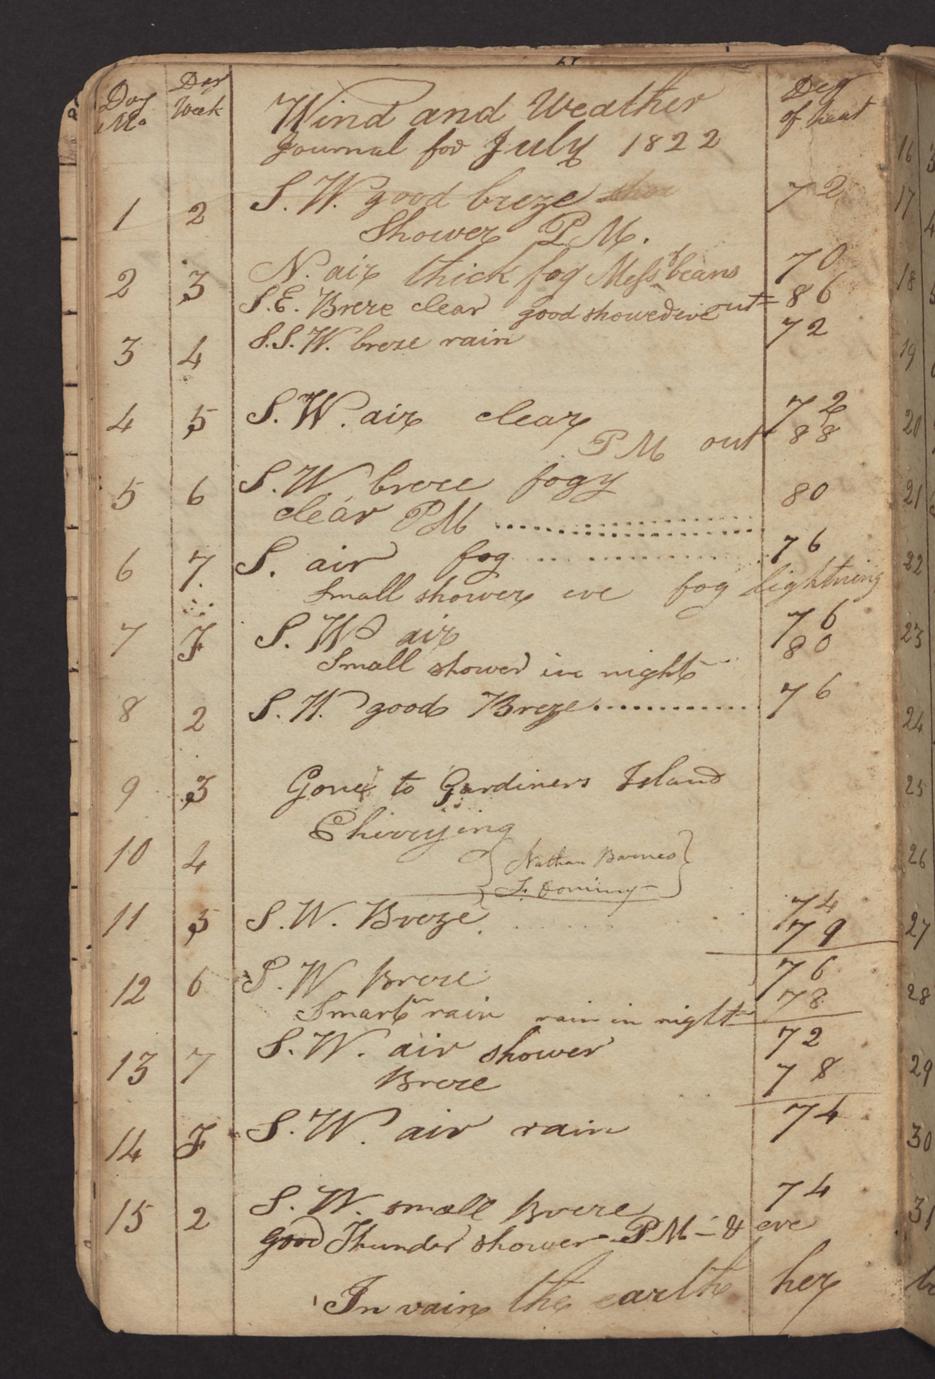 Day Mo. Day Week Wind and Weather Deg of heat
Journal for July 1822
1 2 S. W. good breze 72
Shower P M.
2 3 N. air thick fog beans 70
S.E. Breze clear good shower eve out = 86
3 4 S.S.W. breze rain 72
4 5 S. W. air clear 72
P M out 88
5 6 S. W breze fogy 80
clear PM
6 7 S. air fog 76
Small shower eve fog lightning
7 F S. W air 76
Small shower in night 80
8 2 S. W. good Breze 76
9 3 Gone to Gardiners Island
Chirrying
10 4 Nathan Barnes
F. Dominy
11 5 S. W. Breze 74
79
12 6 S. W Breze 76
Smart rain rain in night 78
13 7 S. W. air shower 72
Breze 78
14 F S. W. air rain 74
15 2 S. W. small Breze 74
good Thunder shower P M - & eve
In vain the earth her
16
17
18
19
20
21
22
23
24
25
26
27
28
29
30
31